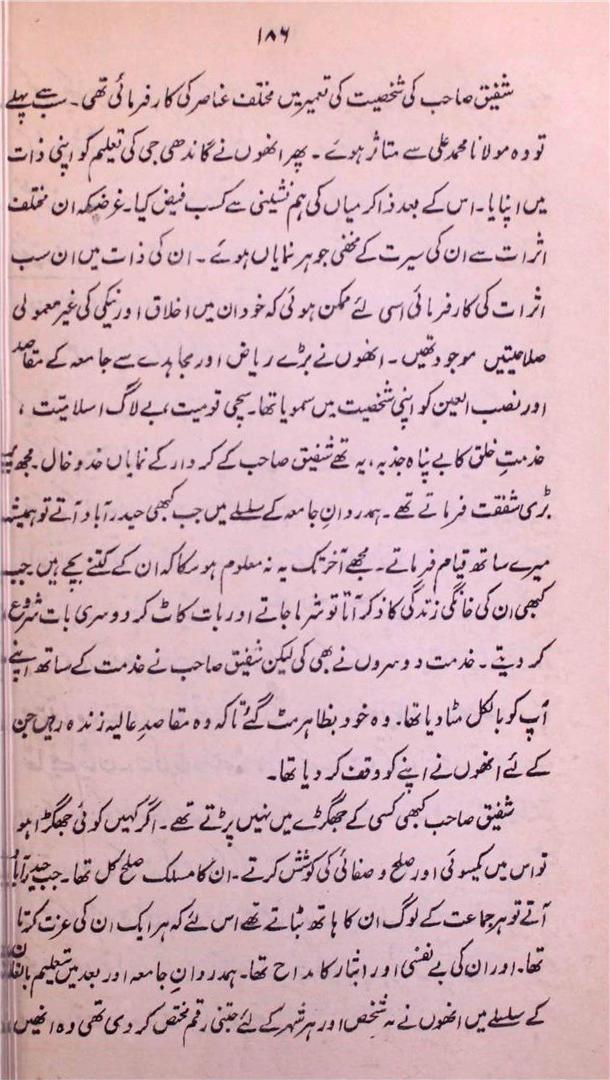 ۱۸۶
شفیق صاحب کی شخصیت کی تعمیر میں مختلف عناصر کی کارفرمائی تھی۔ سب سے پہلے
تو وہ مولانا محمد علی سے متاثر ہوئے۔ پھر انھوں نے گاندھی جی کی تعلیم کو اپنی ذات
میں اپنایا۔ اس کے بعد ذاکر میاں کی ہم نشینی سے کسب فیض کیا۔ غرضکہ ان مختلف
اثرات سے ان کی سیرت کے مخفی جوہر نمایاں ہوئے۔ ان کی ذات میں ان سب
اثرات کی کارفرمائی اسی لئے ممکن ہوئی کہ خود ان میں اخلاق اور نیکی کی غیر معمولی
صلاحیتیں موجود تھیں۔ انھوں نے بڑے ریاض اور مجاہدے سے جامعہ کے مقاصد
اور نصب العین کو اپنی شخصیت میں سمویا تھا۔ سچی قومیت، بے لاگ اسلامیت،
خدمتِ خلق کا بے پناہ جذبہ، یہ تھے شفیق صاحب کے کردار کے نمایاں خدوخال۔ مجھ پر
بڑی شفقت فرماتے تھے۔ ہمدردانِ جامعہ کے سلسلے میں جب کبھی حیدرآباد آتے تو ہمیشہ
میرے ساتھ قیام فرماتے۔ مجھے آخر تک یہ نہ معلوم ہو سکا کہ ان کے کتنے بچے ہیں جب
کبھی ان کی خانگی زندگی کا ذکر آتا تو شرما جاتے اور بات کاٹ کر دوسری بات شروع
کر دیتے۔ خدمت دوسروں نے بھی کی لیکن شفیق صاحب نے خدمت کے ساتھ اپنے
آپ کو بالکل مٹا دیا تھا۔ وہ خود بظاہر مٹ گئے تاکہ وہ مقاصدِ عالیہ زندہ رہیں جن
کے لئے انھوں نے اپنے کو وقف کر دیا تھا۔
شفیق صاحب کبھی کسی کے جھگڑے میں نہیں پڑتے تھے۔ اگر کہیں کوئی جھگڑا ہو
تو اس میں یکسوئی اور صلح و صفائی کی کوشش کرتے۔ ان کا مسلک صلح کل تھا۔ جب حیدرآباد
آتے تو ہر جماعت کے لوگ ان کا ہاتھ بٹاتے تھے اس لئے کہ ہر ایک ان کی عزت کرتا
تھا۔ اور ان کی بے نفسی اور ایثار کا مداح تھا۔ ہمدردانِ جامعہ اور بعد میں تعلیم بالغان
کے سلسلے میں انھوں نے ہر شخص اور ہر شہر کے لئے جتنی رقم مختص کر دی تھی وہ انھیں